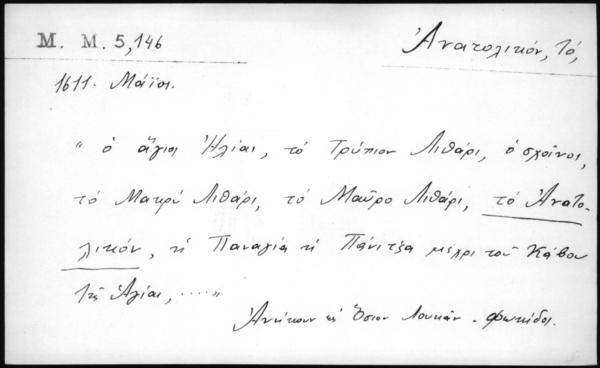 Μ. Μ. 5,146
Ἀνατολικόν, Τό,
1611. Μάϊος.
"ὁ ἅγιος Ἠλίας, τό Τρύπιον Λιθάρι, ὁ σχοῖνος,
τό Μακρί Λιθάρι, τό Μαῦρο Λιθάρι, τό Ἀνατο-
λικόν, ἡ Παναγία ἡ Πάνιτζα μέχρι τοῦ Κάβου
τῆς Ἁγίας, ....."
Ἀνήκουν εἰς Ὅσιον Λουκᾶν - Φωκίδος.